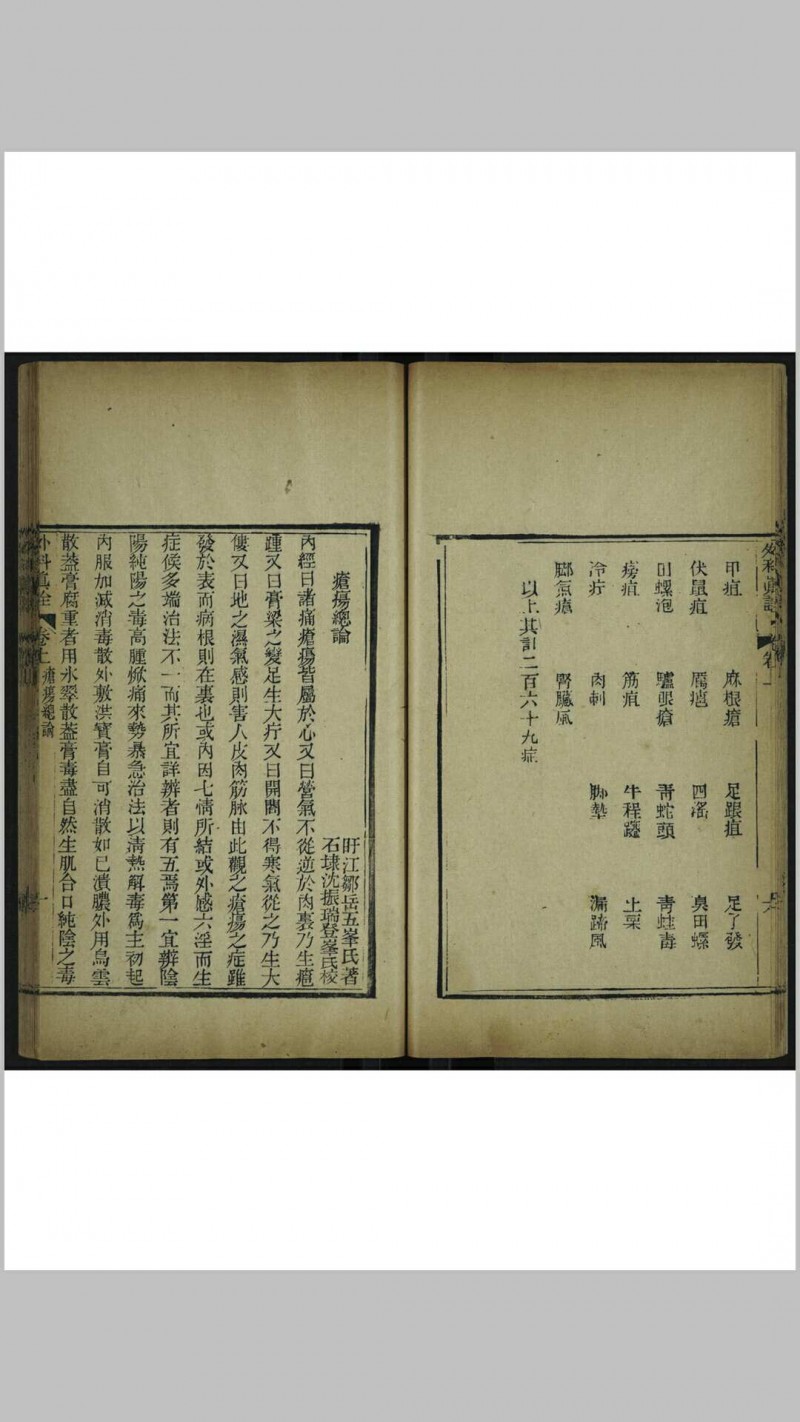 外科真詮 卷上
甲疽 麻根瘡 足跟疽 足了發
伏鼠疽 四淫 臭田螺
田螺泡 驢眼瘡 青蛇頭 青蛙毒
筋疽 牛程蹇 土栗
冷疔 肉刺 脚墊 漏蹄風
腳氣瘡 腎臟風
以上共計二百六十九症
瘡瘍總論
盱江鄒岳五峯氏著
石埭沈振瑞登峯氏校
內經曰諸痛瘡瘍皆屬於心又曰營氣不從逆於肉裏乃生癰
踵又曰膏梁之變足生大疔又曰開閤不得寒氣從之乃生大
僂又曰地之濕氣感則害人皮肉筋脉由此觀之瘡瘍之症雖
發於表而病根則在裏也或內因七情所結或外感六淫而生
症候多端治法不一而其所宜詳辨者則有五焉第一宜辨陰
陽純陽之毒高腫焮痛來勢暴急治法以清熱解毒爲主初起
內服加減消毒散外敷洪寶膏自可消散如已潰膿外用烏雲
散葢膏腐重者用氷翠散葢膏毒盡自然生肌合口純陰之毒
外科真詮 卷上 瘡瘍總論 一